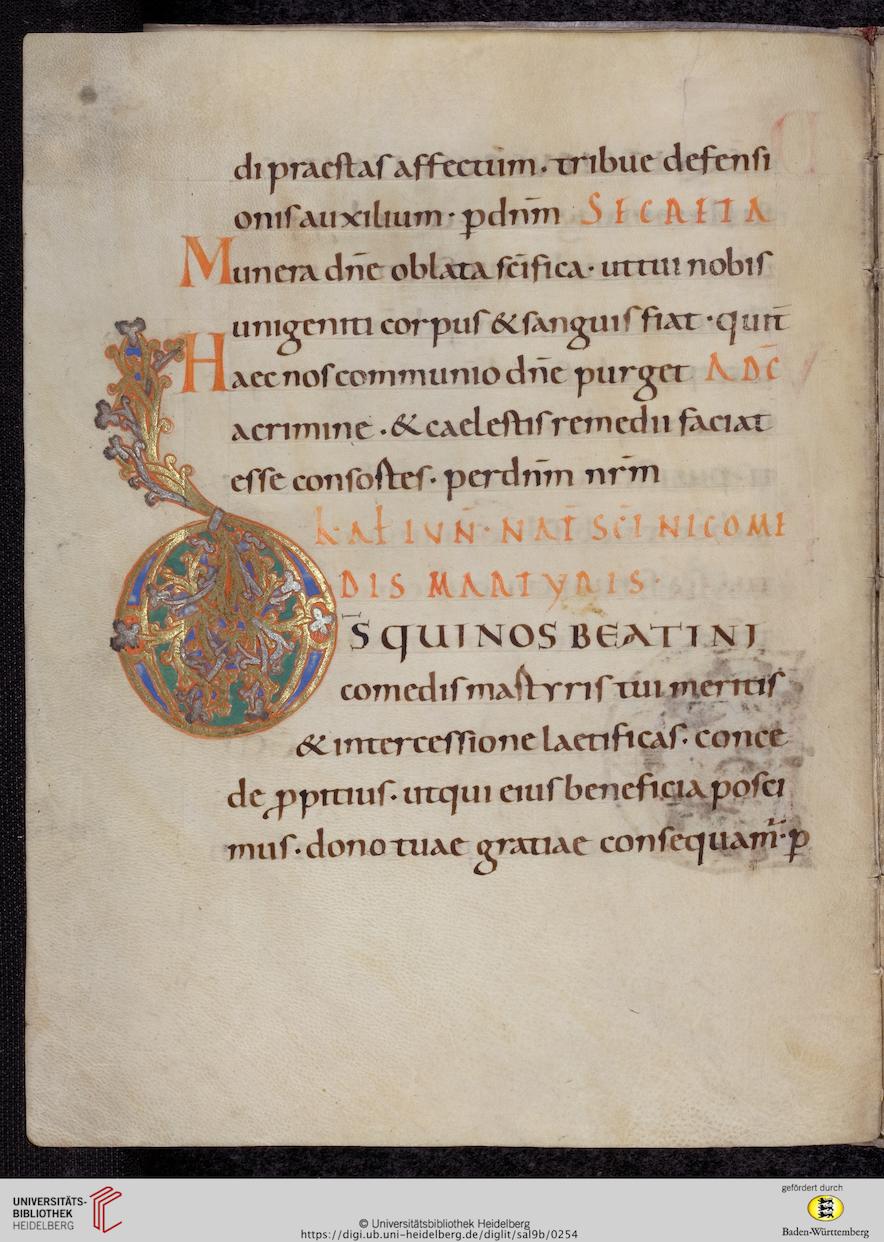 di praestas affectum. tribue defensi
onis auxilium. p dnm̄ SECRETA
Munera dn̄e oblata sc̄ifica. ut tui nobis
unigeniti corpus & sanguis fiat. qui t̄
Haec nos communio dn̄e purget AD C̄
a crimine. & caelestis remedii faciat
esse consortes. per dnm̄ nrm̄
KAL IUN̄. NAT̄ SC̄I NICOME
DIS MARTYRIS.
D̄S QUI NOS BEATI NI
comedis martyris tui meritis
& intercessione laetificas. conce
de ꝓpitius. ut qui eius beneficia posci
mus. dono tuae gratiae consequam̄. p
UNIVERSITÄTS-
BIBLIOTHEK
HEIDELBERG
© Universitätsbibliothek Heidelberg
https://digi.ub.uni-heidelberg.de/diglit/sal9b/0254
gefördert durch
Baden-Württemberg